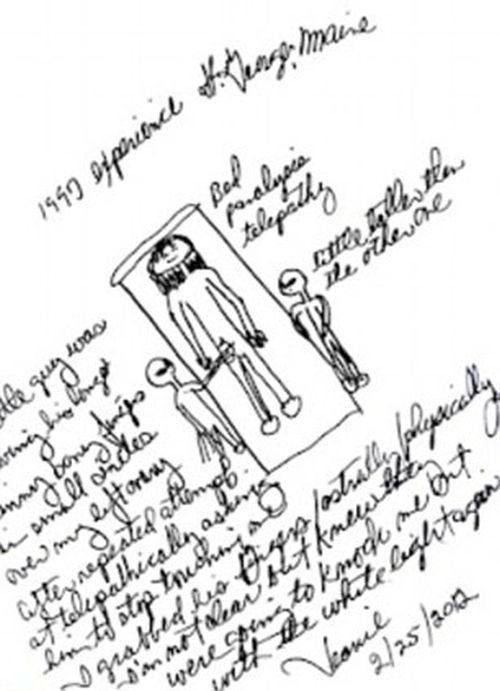 1997 experience St. George, Maine
Bed
paralysis
telepathy
little taller then
the other one
guy was
his long
bony fingers
in small circles
over my left ovary
after repeated attempts
at telepathically asking
him to stop touching me
I grabbed his fingers/astrally/physically
I'm not clear but knew they
were going to knock me out
with the white light again
2/25/2012